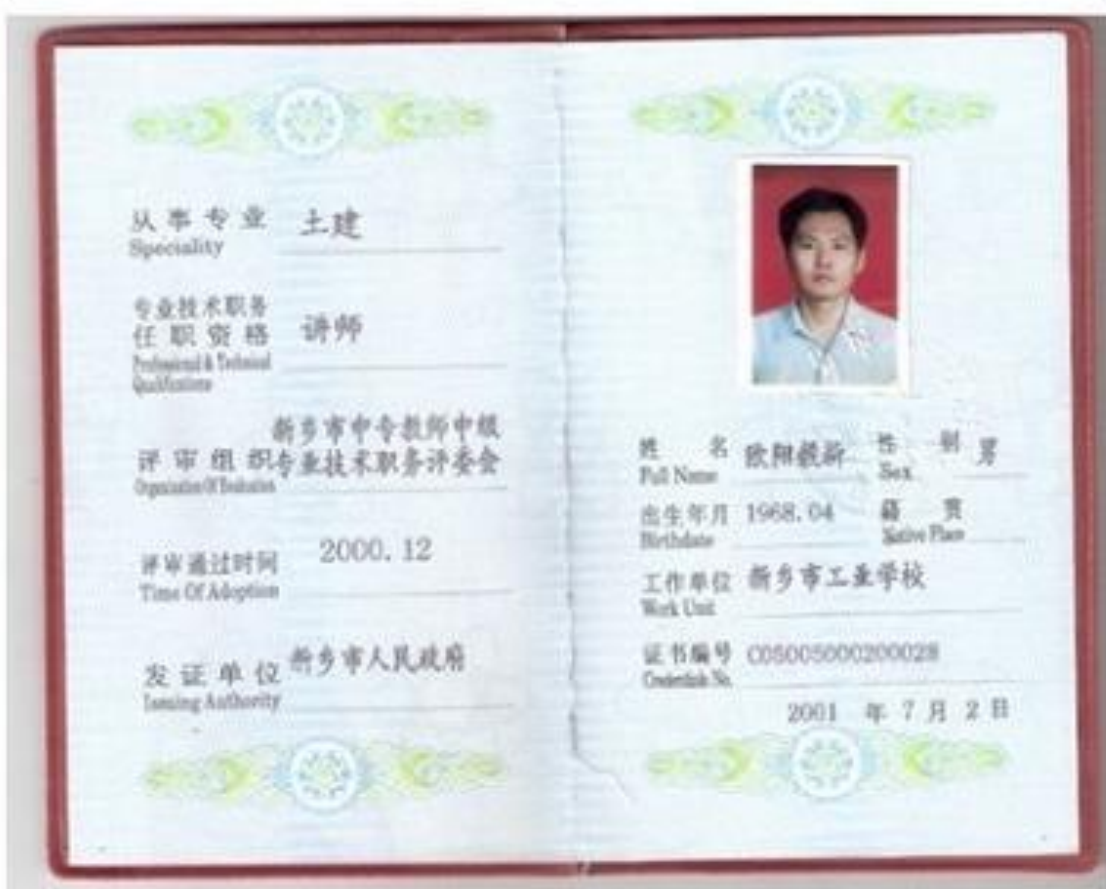 从事专业 土建
Speciality
专业技术职务
任职资格 讲师
Professional & Technical
Qualifications
新乡市中专教师中级
评审组织 专业技术职务评委会
Organization Of Evaluation
评审通过时间 2000.12
Time Of Adoption
发证单位 新乡市人民政府
Issuing Authority
姓名 欧阳 性别 男
Full Name Sex
出生年月 1968.04 籍贯
Birthdate Native Place
工作单位 新乡市工业学校
Work Unit
证书编号 C05005000200028
Credentials No.
2001 年 7 月 2 日